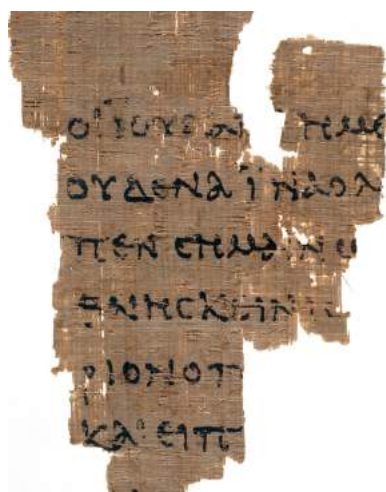 ΟΙ ΪΟΥΔΑΙ ΗΜΕ
ΟΥΔΕΝΑ ΪΝΑ Ο Λ
ΠΕΝ CΗΜΑΙΝΩ
ΘΝΗCΚΕΙΝ Ι
ΡΙΟΝ Ο Π
ΚΑΙ ΕΙΠ